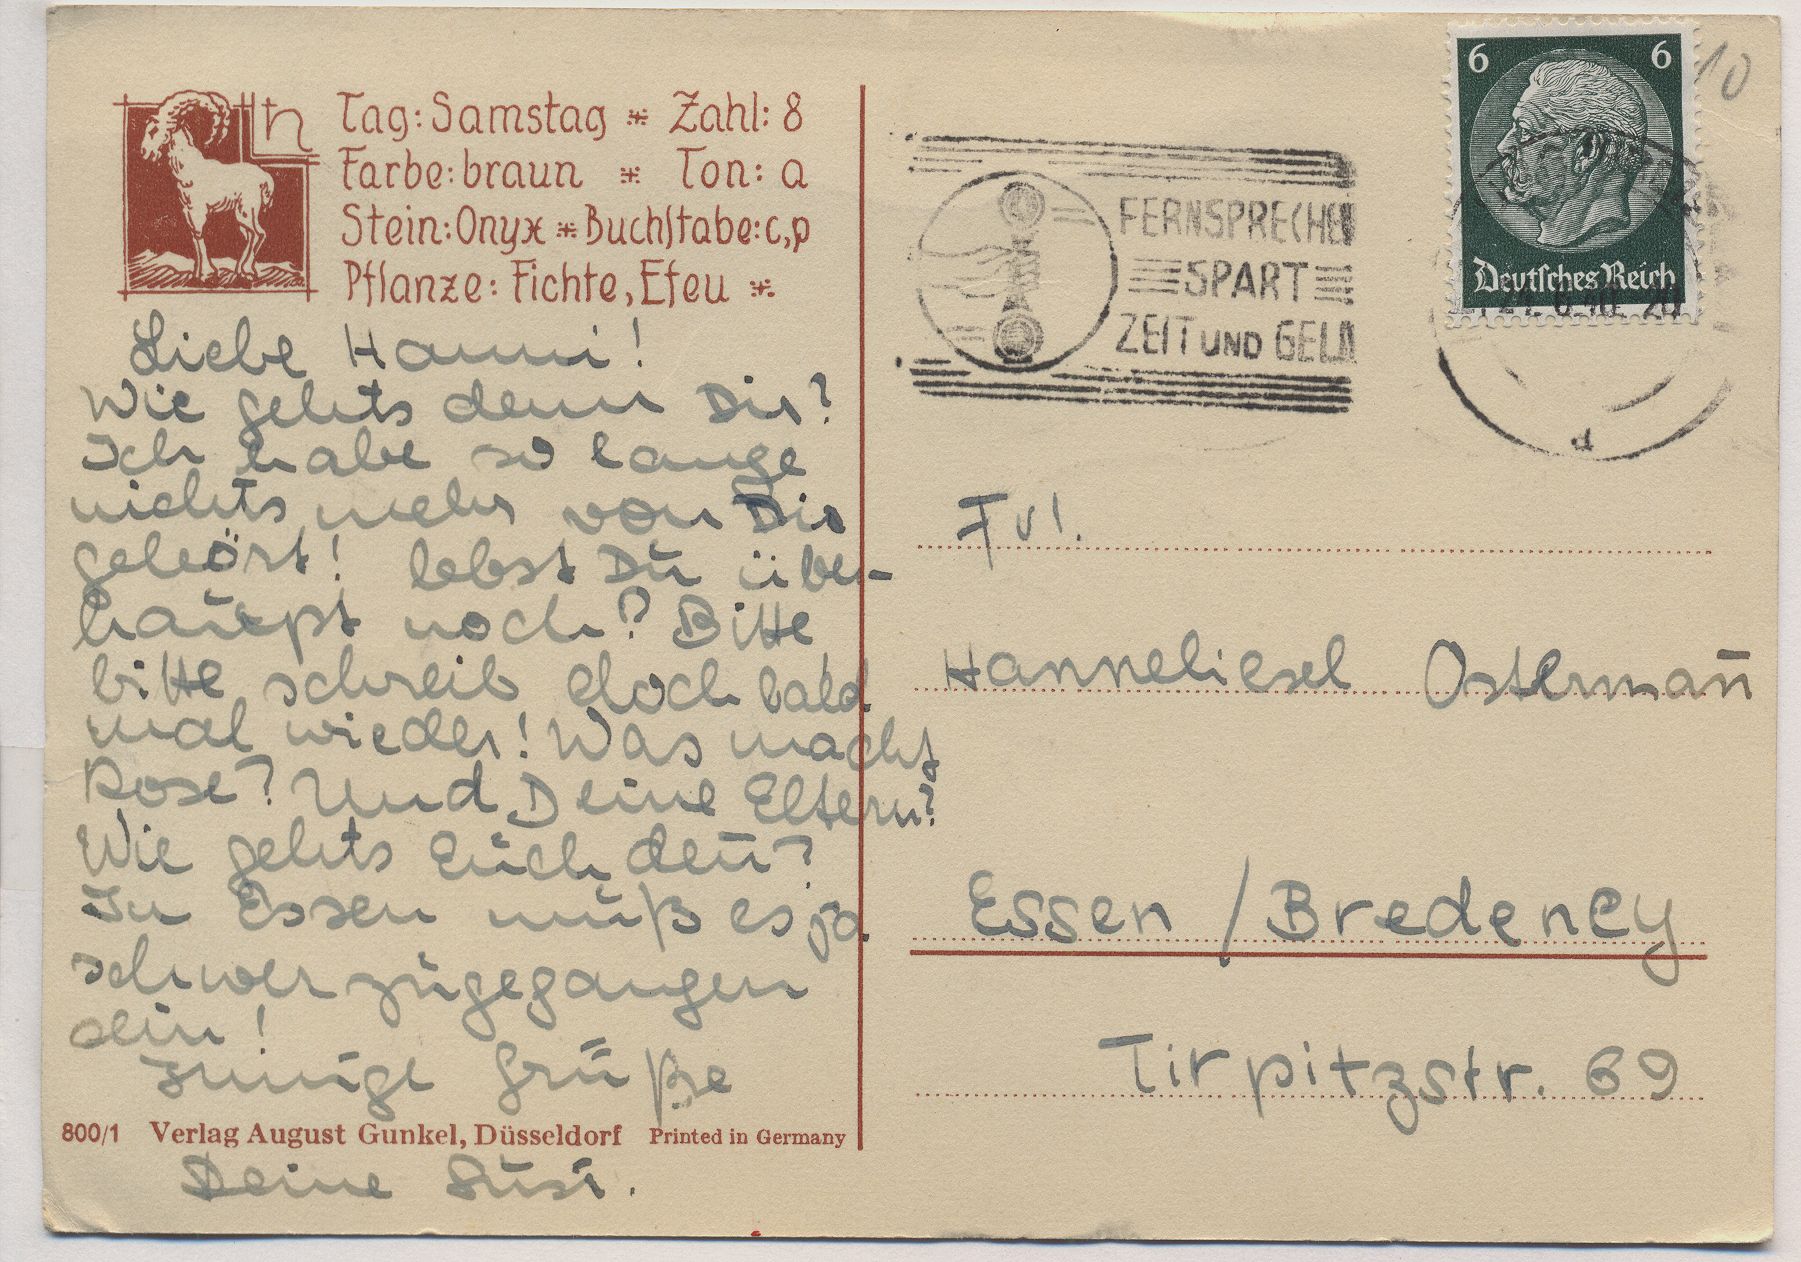 Tag: Samstag * Zahl: 8
Farbe: braun * Ton: a
Stein: Onyx * Buchstabe: c, p
Pflanze: Fichte, Efeu *
Liebe Hanni!
Wie gehts denn Dir?
Ich habe so lange
nichts mehr von Dir
gehört! Lebst Du über-
haupt noch? Bitte,
bitte schreib doch bald
mal wieder! Was macht
Rose? Und Deine Eltern?
Wie gehts Euch den̄?
In Essen muß es ja
schwer zugegangen
sein!
Innige Grüße
800/1 Verlag August Gunkel, Düsseldorf Printed in Germany
Deine Susi.
FERNSPRECHEN
SPART
ZEIT UND GELD
6 6
Deutsches Reich
6.40. 20
d
10
Frl.
Hanneliesel Osterman̄
Essen / Bredeney
Tirpitzstr. 69